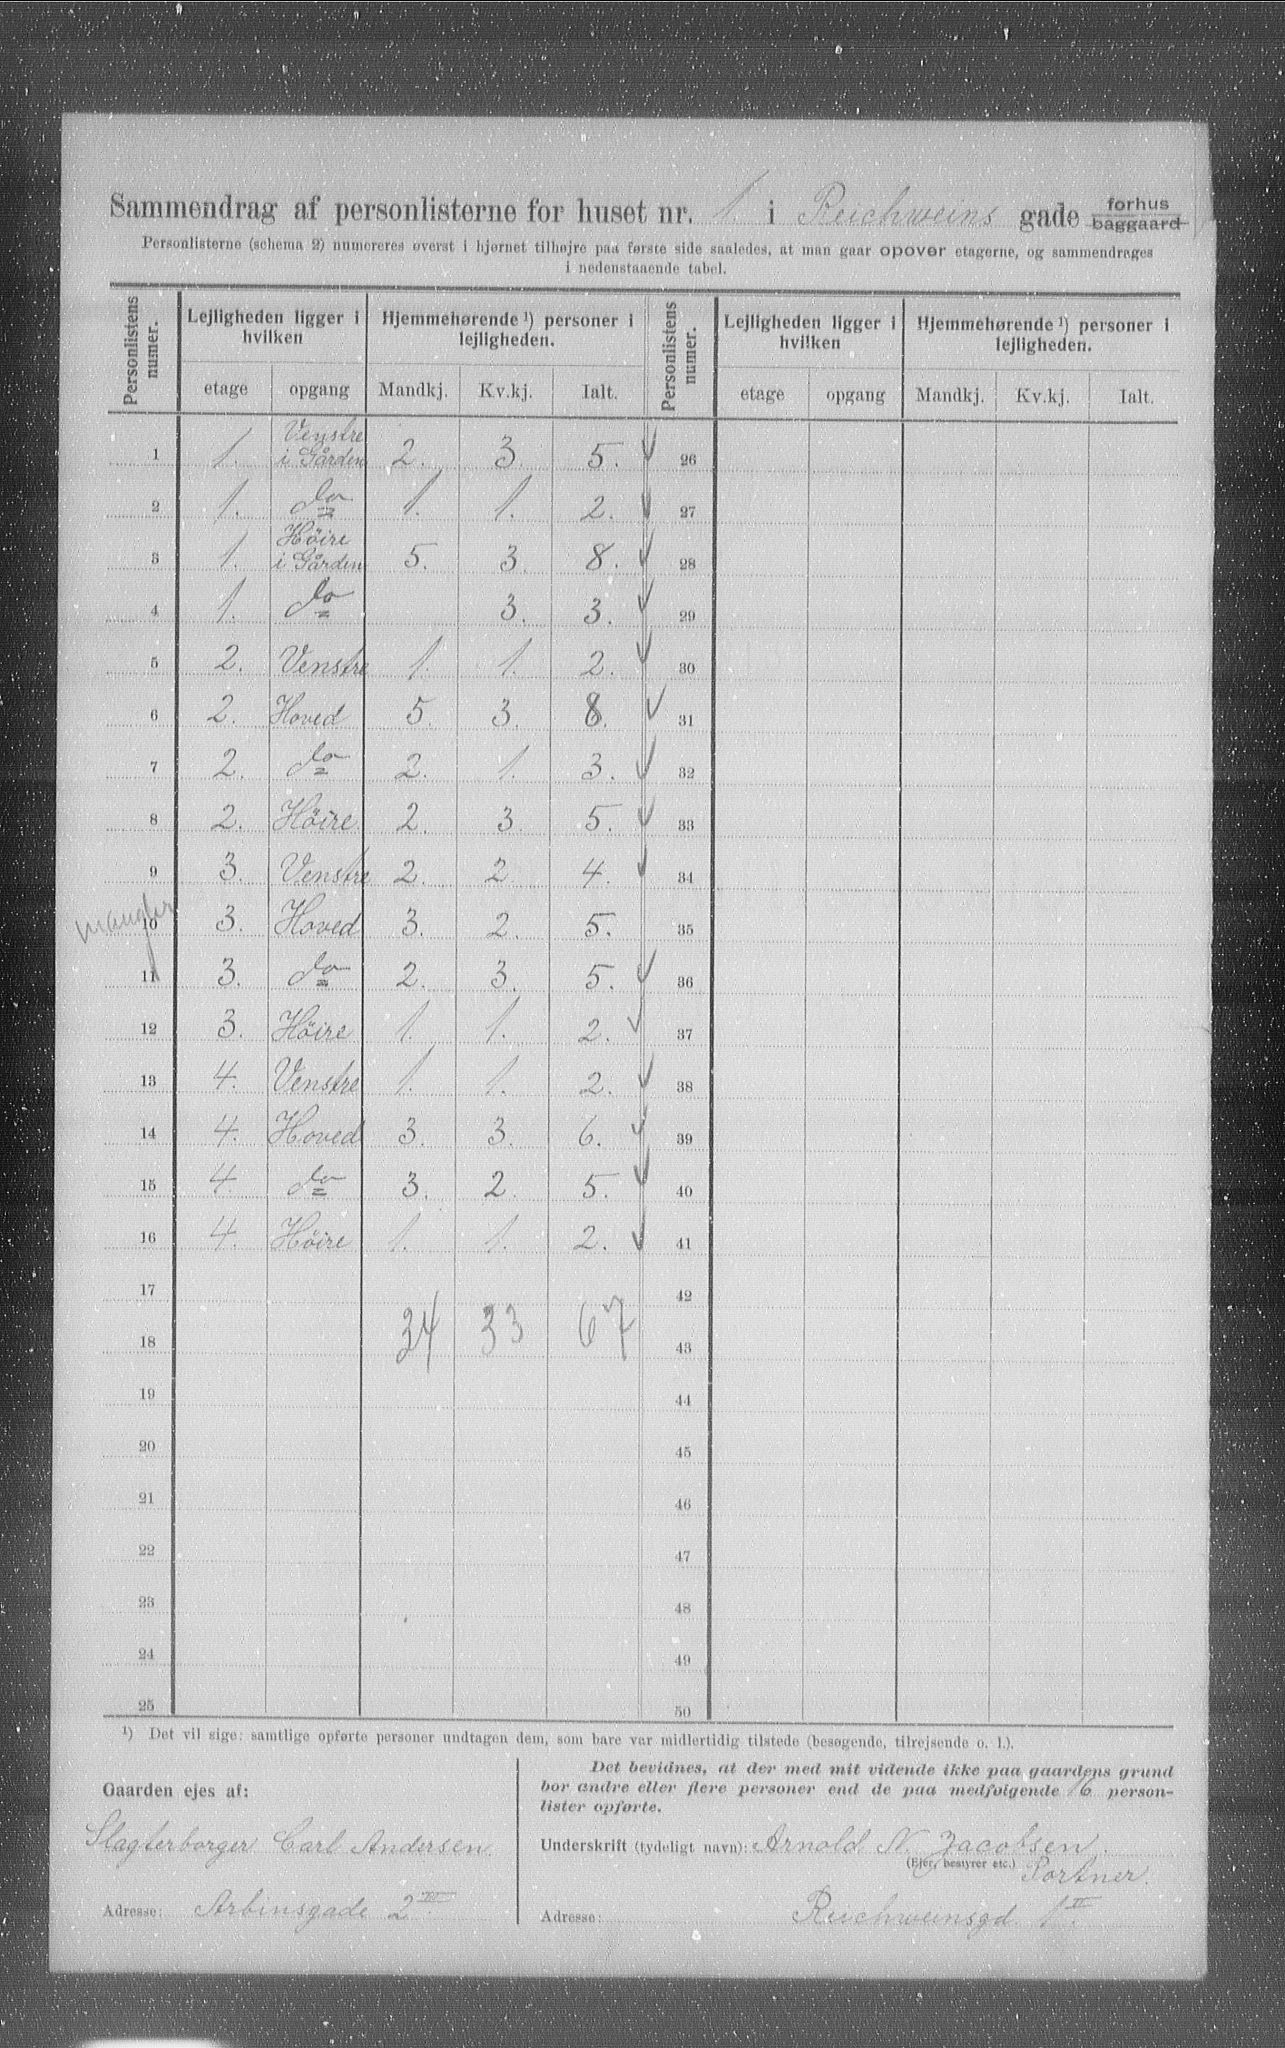 Sammendrag af personlisterne for huset nr. 1. i Reichweins gade forhus baggaard
Personlisterne (schema 2) numereres øverst i hjørnet tilhøjre paa første side saaledes, at man gaar opover etagerne, og sammendrages
i nedenstaaende tabel.
Personlistens numer. Lejligheden ligger i hvilken Hjemmehørende ¹) personer i lejligheden. Personlistens numer. Lejligheden ligger i hvilken Hjemmehørende ¹) personer i lejligheden.
etage opgang Mandkj. Kv.kj. Ialt. etage opgang Mandkj. Kv.kj. Ialt.
1 1. Venstre i Gården 2. 3. 5. 26
2 1. do 1. 1. 2. 27
3 1. Höire i Gården 5. 3. 8. 28
4 1. do 3. 3. 29
5 2. Venstre 1. 1. 2. 30
6 2. Hoved 5. 3. 8. 31
7 2. do 2. 1. 3. 32
8 2. Höire 2. 3. 5. 33
9 3. Venstre 2. 2. 4. 34
mangler
10 3. Hoved 3. 2. 5. 35
11 3. do 2. 3. 5. 36
12 3. Höire 1. 1. 2. 37
13 4. Venstre 1. 1. 2. 38
14 4. Hoved 3. 3. 6. 39
15 4. do 3. 2. 5. 40
16 4. Höire 1. 1. 2. 41
17 42
34 33 67
18 43
19 44
20 45
21 46
22 47
23 48
24 49
25 50
¹) Det vil sige: samtlige opførte personer undtagen dem, som bare var midlertidig tilstede (besøgende, tilrejsende o. l.).
Gaarden ejes af:
Slagterborger Carl Andersen
Adresse: Arbinsgade 2 III
Det bevidnes, at der med mit vidende ikke paa gaardens grund
bor andre eller flere personer end de paa medfølgende 16 person-
lister opførte.
Underskrift (tydeligt navn): Arnold N. Jacobsen.
(Ejer, bestyrer etc.) Portner.
Adresse: Reichweinsgd. 1 II.